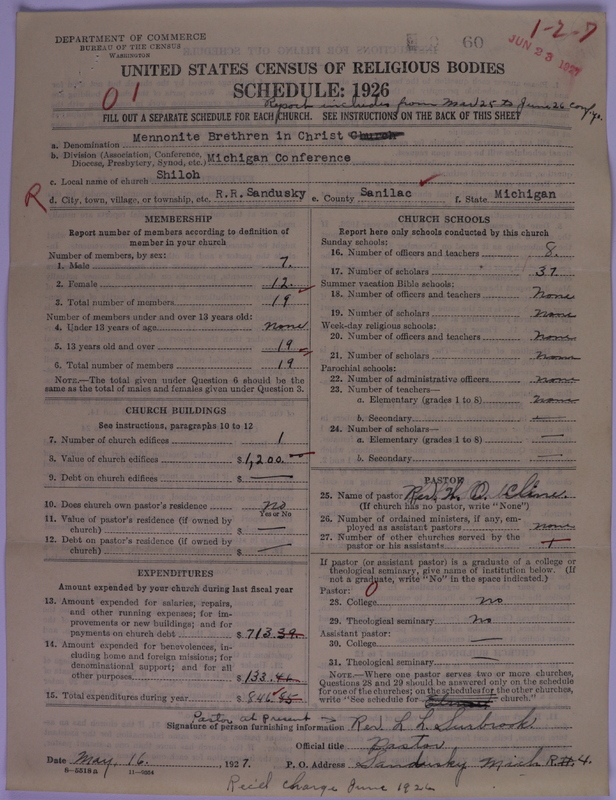 DEPARTMENT OF COMMERCE
BUREAU OF THE CENSUS
WASHINGTON
60
1-2-7
JUN 23 1927
UNITED STATES CENSUS OF RELIGIOUS BODIES
SCHEDULE: 1926
01
Report includes from Mar 25 to June 26 Conf. yr.
FILL OUT A SEPARATE SCHEDULE FOR EACH CHURCH. SEE INSTRUCTIONS ON THE BACK OF THIS SHEET
a. Denomination Mennonite Brethren in Christ Church
b. Division (Association, Conference, Diocese, Presbytery, Synod, etc.) Michigan Conference
c. Local name of church Shiloh
R d. City, town, village, or township, etc. R.R. Sandusky e. County Sanilac f. State Michigan
MEMBERSHIP
Report number of members according to definition of
member in your church
Number of members, by sex:
1. Male 7.
2. Female 12.
3. Total number of members 19
Number of members under and over 13 years old:
4. Under 13 years of age none
5. 13 years old and over 19
6. Total number of members 19
NOTE.—The total given under Question 6 should be the
same as the total of males and females given under Question 3.
CHURCH BUILDINGS
See instructions, paragraphs 10 to 12
7. Number of church edifices 1
8. Value of church edifices $1,200.
9. Debt on church edifices $ —
10. Does church own pastor's residence no
Yes or No
11. Value of pastor's residence (if owned by
church) $ —
12. Debt on pastor's residence (if owned by
church) $ —
EXPENDITURES
Amount expended by your church during last fiscal year
13. Amount expended for salaries, repairs,
and other running expenses; for im-
provements or new buildings; and for
payments on church debt $ 713.39
14. Amount expended for benevolences, in-
cluding home and foreign missions; for
denominational support; and for all
other purposes $ 133.46
15. Total expenditures during year $ 846.85
CHURCH SCHOOLS
Report here only schools conducted by this church
Sunday schools:
16. Number of officers and teachers 8.
17. Number of scholars 37.
Summer vacation Bible schools:
18. Number of officers and teachers None
19. Number of scholars None
Week-day religious schools:
20. Number of officers and teachers None
21. Number of scholars None
Parochial schools:
22. Number of administrative officers None
23. Number of teachers—
a. Elementary (grades 1 to 8) None
b. Secondary —
24. Number of scholars—
a. Elementary (grades 1 to 8) —
b. Secondary —
PASTOR
25. Name of pastor Rev. H. O. Cline.
(If church has no pastor, write "None")
26. Number of ordained ministers, if any, em-
ployed as assistant pastors None
27. Number of other churches served by the
pastor or his assistants
If pastor (or assistant pastor) is a graduate of a college or
theological seminary, give name of institution below. (If
not a graduate, write "No" in the space indicated.)
Pastor: 0
28. College no
29. Theological seminary no
Assistant pastor:
30. College —
31. Theological seminary —
NOTE.—Where one pastor serves two or more churches,
Questions 28 and 29 should be answered only on the schedule
for one of the churches; on the schedules for the other churches,
write "See schedule for church."
Pastor at present → Rev. L. L. Surbrook.
Signature of person furnishing information
Official title Pastor
Date May, 16. , 1927. P. O. Address Sandusky Mich R.#.4.
8-5518a 11-9024
Rec'd charge June 1926